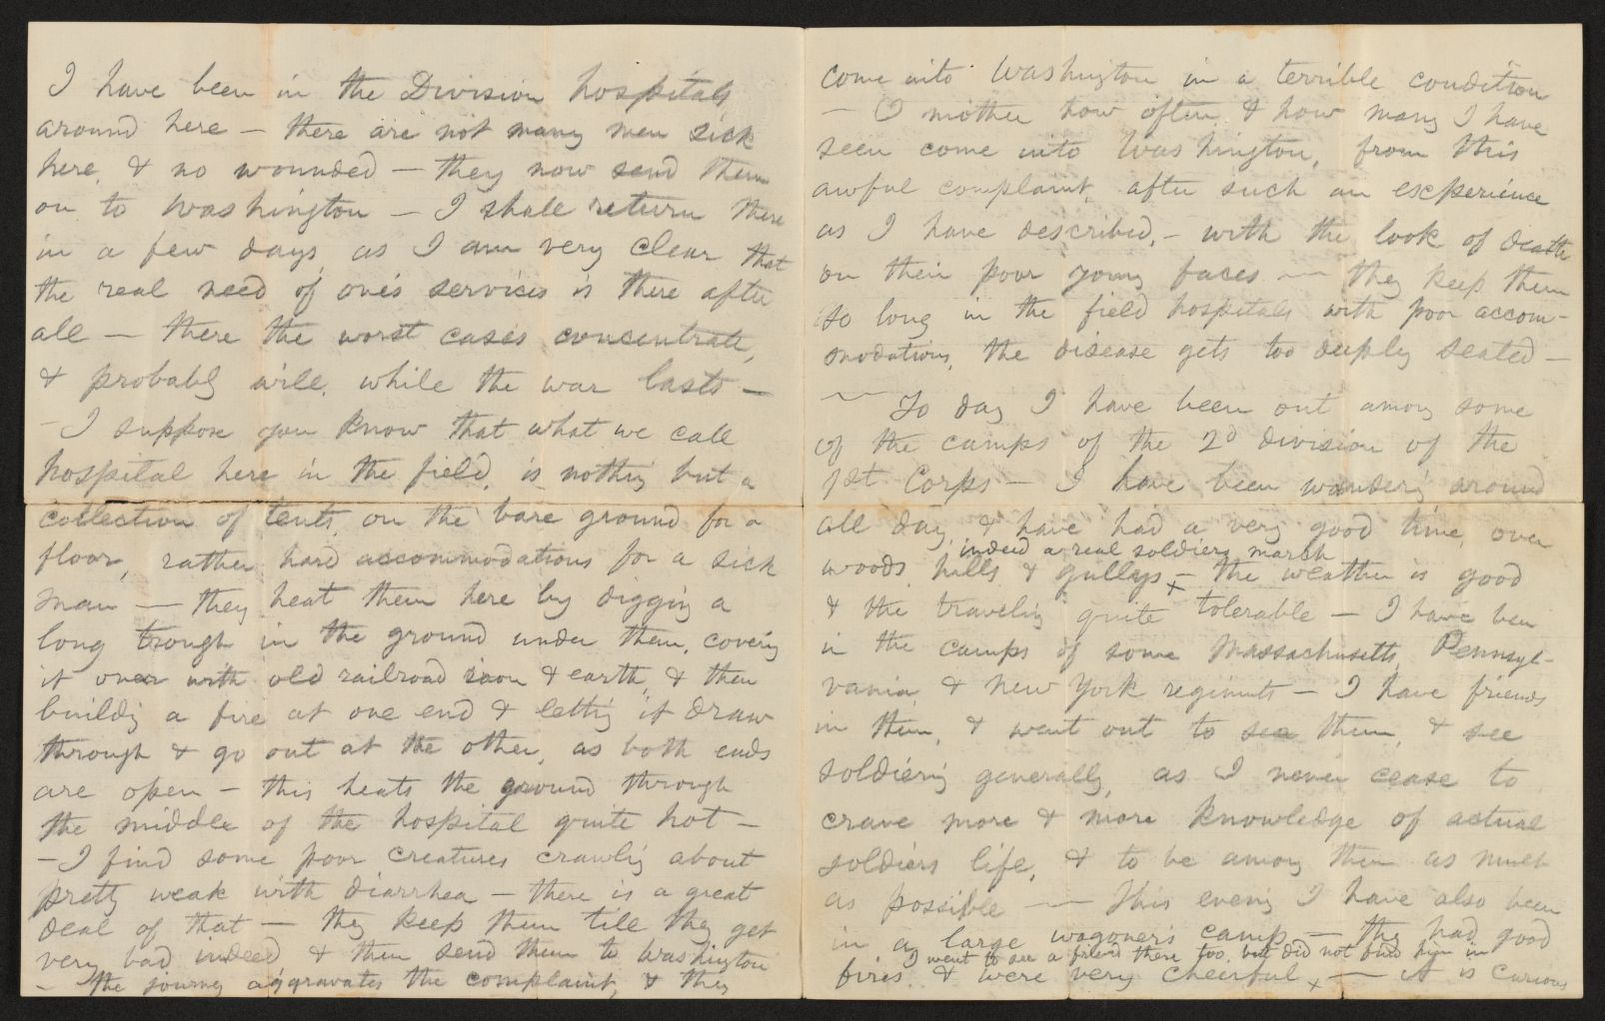 I have been in the Division hospitals
around here — there are not many men sick
here, & no wounded — they now send them
on to Washington — I shall return there
in a few days as I am very clear that
the real need of one's services is there after
all — there the worst cases concentrate,
& probably will, while the war lasts —
— I suppose you know that what we call
hospital here in the field, is nothing but a
collection of tents, on the bare ground for a
floor, rather hard accommodations for a sick
man — they heat them here by digging a
long trough in the ground under them, covering
it over with old railroad iron & earth, & then
building a fire at one end & letting it draw
through & go out at the other, as both ends
are open — this heats the ground through
the middle of the hospital quite hot —
— I find some poor creatures crawling about
pretty weak with diarrhea — there is a great
deal of that — they keep them till they get
very bad indeed & then send them to Washington
— the journey aggravates the complaint, & they
come into Washington in a terrible condition
— O mother how often & how many I have
seen come into Washington, from this
awful complaint, after such an experience
as I have described, — with the look of death
on their poor young faces — they keep them
so long in the field hospitals with poor accom-
modations, the disease gets too deeply seated —
— To day I have been out among some
of the camps of the 2d division of the
1st Corps — I have been wandering around
all day, & have had a very good time, over
woods, hills & gullys —
indeed a real soldiers march
the weather is good
& the traveling quite tolerable — I have been
in the camps of some Massachusetts, Pennsyl-
vania & New York regiments — I have friends
in them, & went out to see them, & see
soldiering generally, as I never cease to
crave more & more knowledge of actual
soldiers life, & to be among them as much
as possible — This evening I have also been
in a large wagoner's camp — they had good
fires & were very cheerful,
I went to see a friend there too, but did not find him in
— it is curious